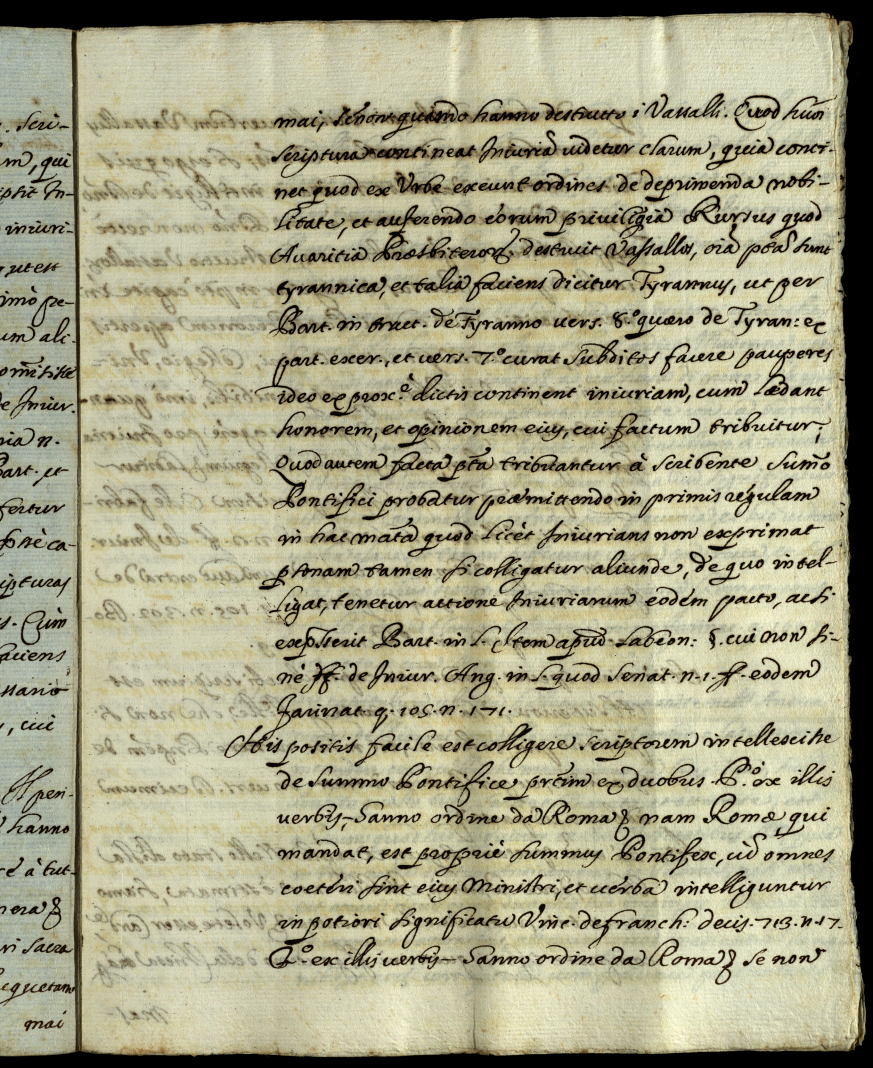 Scri-
m, qui
ptit In-
iniuri-
ut est
imò pe-
um ali-
de Iniur.
ria n.
Bart. et
fertur
scripturas
s. Cum
faciens
ssario
, cui
hanno
cè à tut-
nera
ri sacra
mai
mai, senon quando hanno destrutto i Vassalli. Quod huiõi
scriptura contineat Iniuriã videtur clarum, quia conti-
net quod ex Urbe exeunt ordines de deprimenda nobi-
litate, et auferendo eorum priviligia Rursus quod
Avaritia Præsbiteror. destruit Vassallos, oiã pta sunt
tyrannica, et talia faciens dicitur Tyrannus, ut per
Bart. in tract. de Tyranno vers. 8.º quæro de Tyran: ex
part. exer., et vers. 7.º curat subditos facere pauperes
ideo ex prox.è dictis continent iniuriam, cum lædant
honorem, et opinionem eius, cui factum tribuitur;
Quod autem facta pta tribuantur à scribente Sumõ
Pontifici probatur præmittendo in primis regulam
in hac matã quod licèt Iniurians non exprimat
psonam tamen si colligatur aliunde, de quo intel-
ligat, tenetur actione Iniuriarum eodem pacto, ac si
expsserit Bart. in L. Item apud Labeon: §. cui non si-
nè ff. de Iniur. Ang. in L. quod Senat. n. 1. ff. eodem
Farinat. q. 105. n. 171.
His positis facile est colligere scriptorem intellexisse
de Summo Pontifice prtim ex duobus P.º ex illis
verbis, Sanno ordine da Roma nam Romæ qui
mandat, est propriè summus Pontifex, cũ omnes
coeteri sint eius Ministri, et verba intelliguntur
in potiori significatu Vinc. de franch: decis. 713. n. 17.
2.º ex illis verbis Sanno ordine da Roma se non